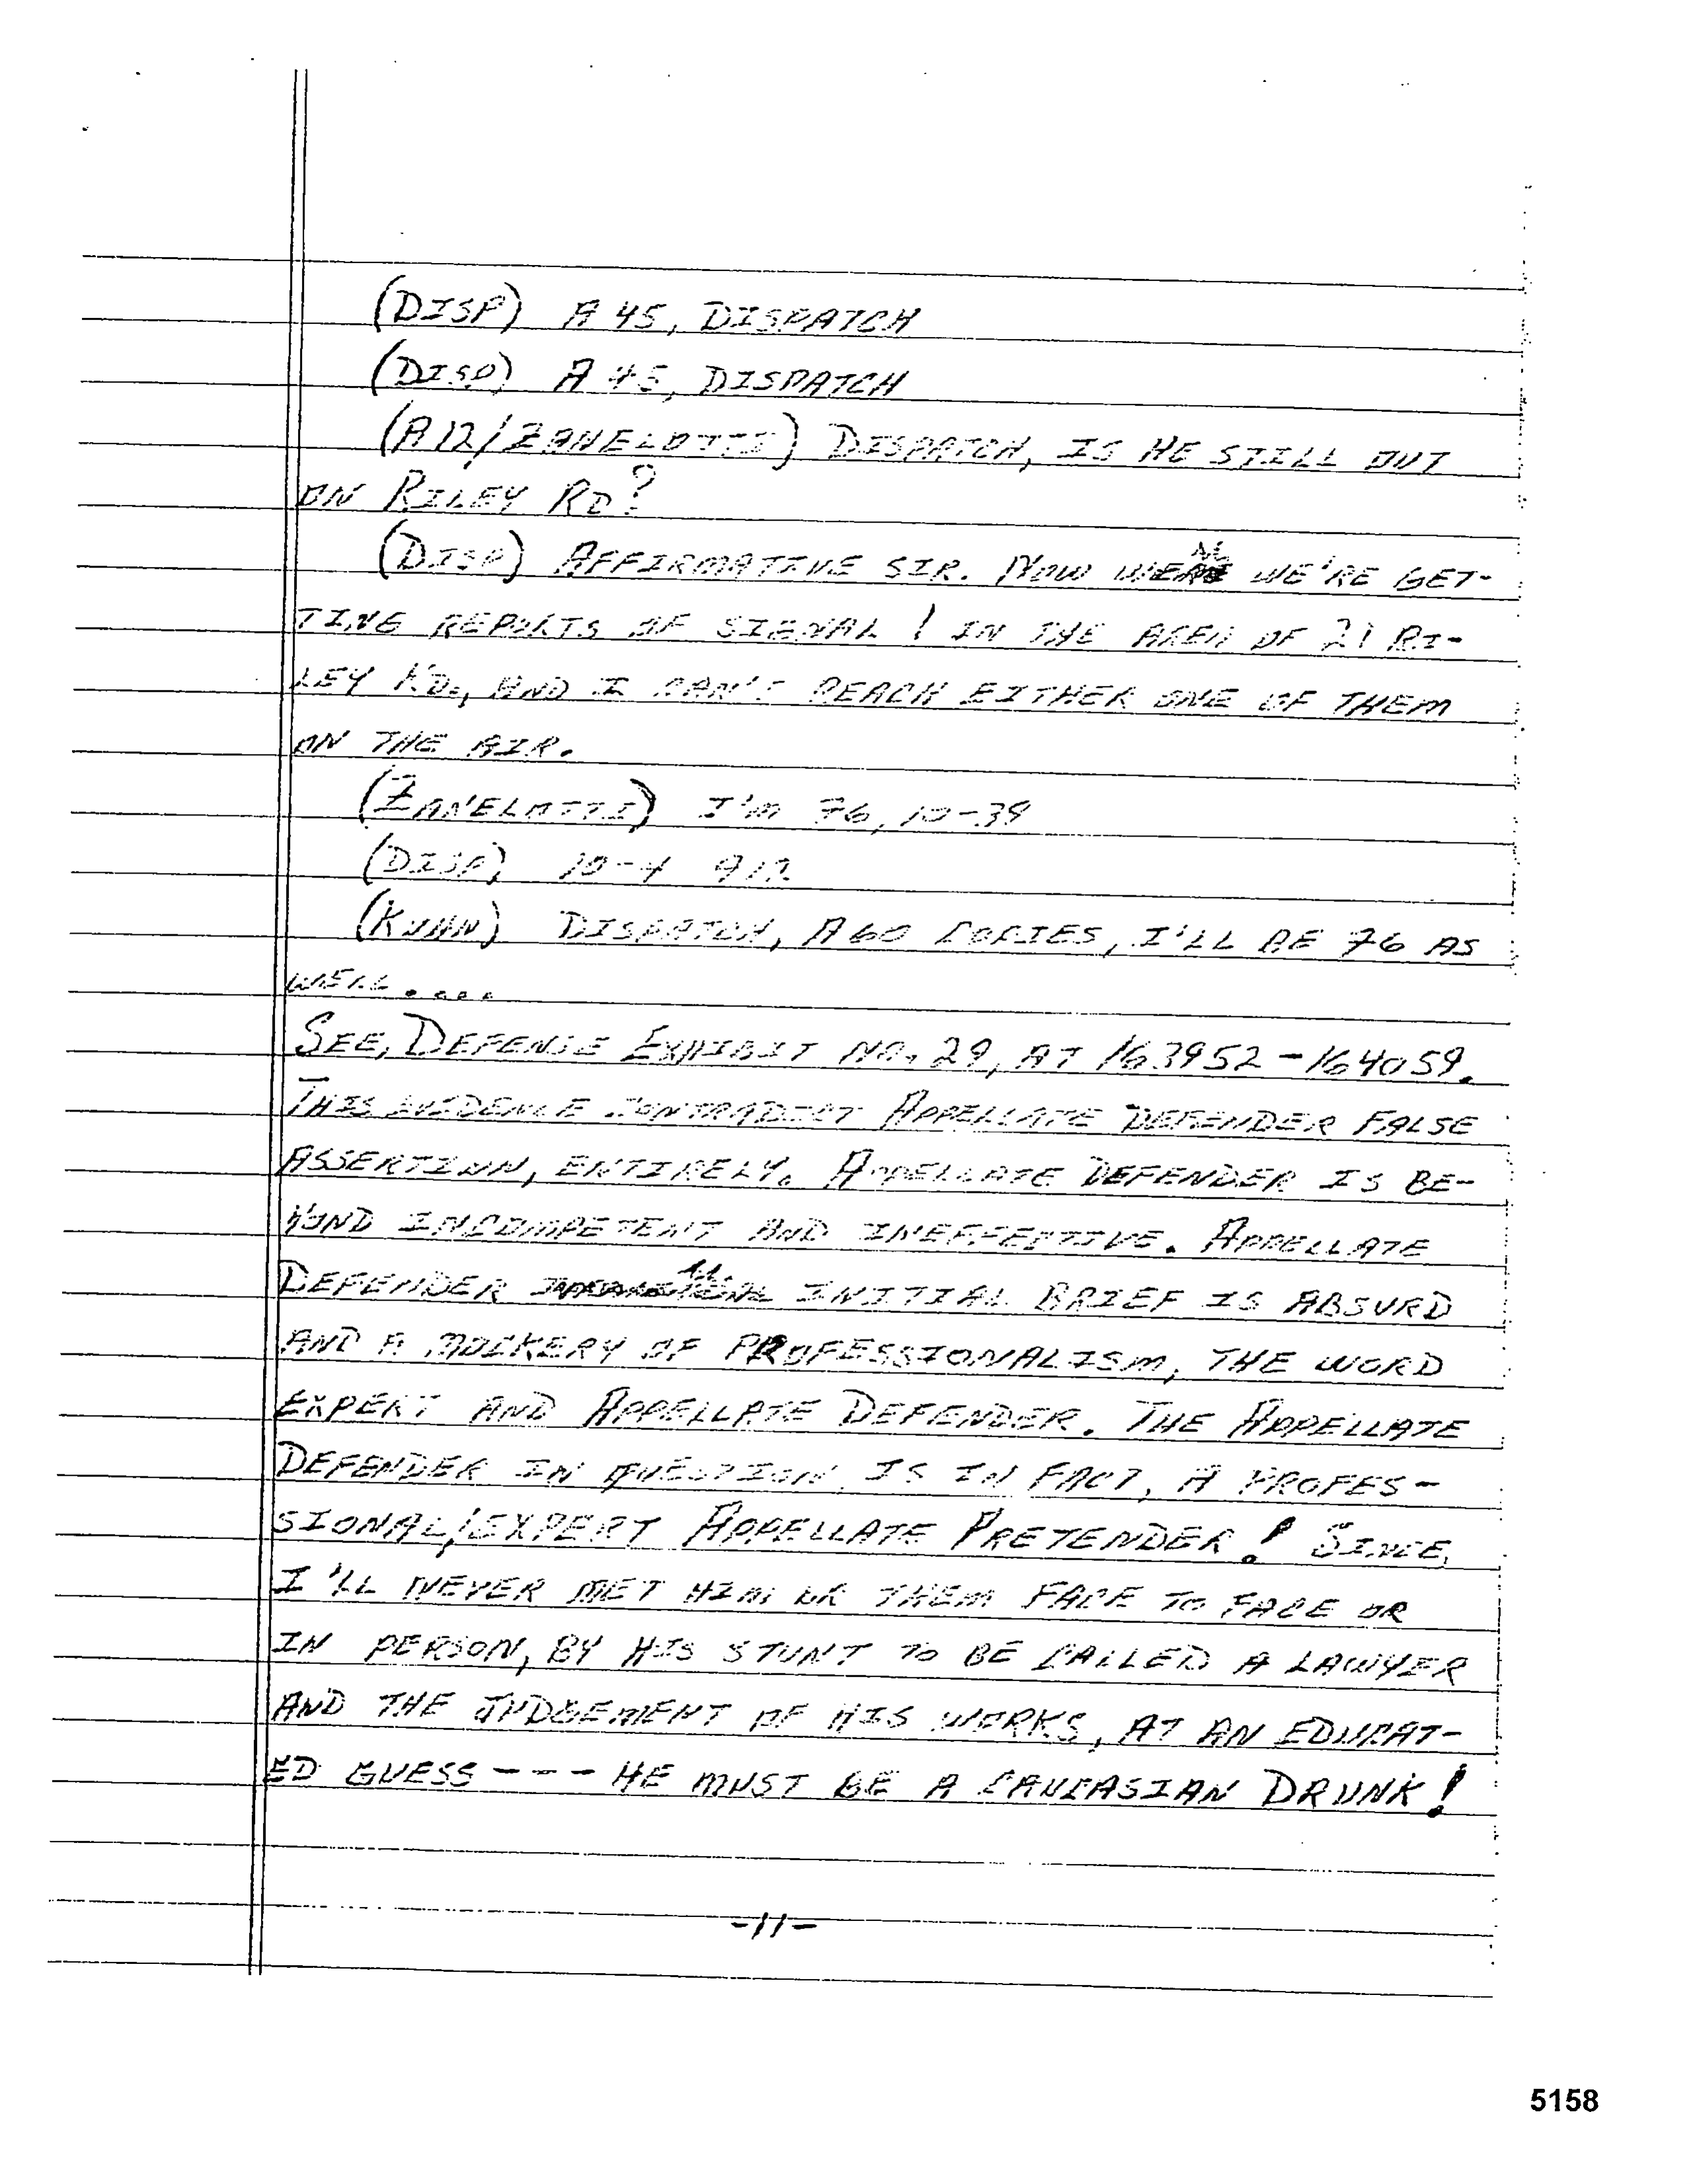 (DISP) A 45, DISPATCH
(DISP) A 45, DISPATCH
(A12/ZANELOTTI) DISPATCH, IS HE STILL OUT
ON RILEY RD?
(DISP) AFFIRMATIVE SIR. NOW WE'RE GET-
TING REPORTS OF SIGNAL 1 IN THE AREA OF 21 RI-
LEY RD., AND I CAN'T REACH EITHER ONE OF THEM
ON THE AIR.
(ZANELOTTI) I'M 76, 10-39
(DISP) 10-4 912
(KUHN) DISPATCH, A60 COPIES, I'LL BE 76 AS
WELL....
SEE, DEFENSE EXHIBIT NO. 29, AT 163952-164059.
THIS EVIDENCE CONTRADICT APPELLATE DEFENDER FALSE
ASSERTION, ENTIRELY. APPELLATE DEFENDER IS BE-
YOND INCOMPETENT AND INEFFECTIVE. APPELLATE
DEFENDER INITIAL BRIEF IS ABSURD
AND A MOCKERY OF PROFESSIONALISM, THE WORD
EXPERT AND APPELLATE DEFENDER. THE APPELLATE
DEFENDER IN QUESTION IS IN FACT, A PROFES-
SIONAL/EXPERT APPELLATE PRETENDER! SINCE,
I'LL NEVER MET HIM OR THEM FACE TO FACE OR
IN PERSON, BY HIS STUNT TO BE CALLED A LAWYER
AND THE JUDGEMENT OF HIS WORKS, AT AN EDUCAT-
ED GUESS --- HE MUST BE A CAUCASIAN DRUNK!
-11-
5158